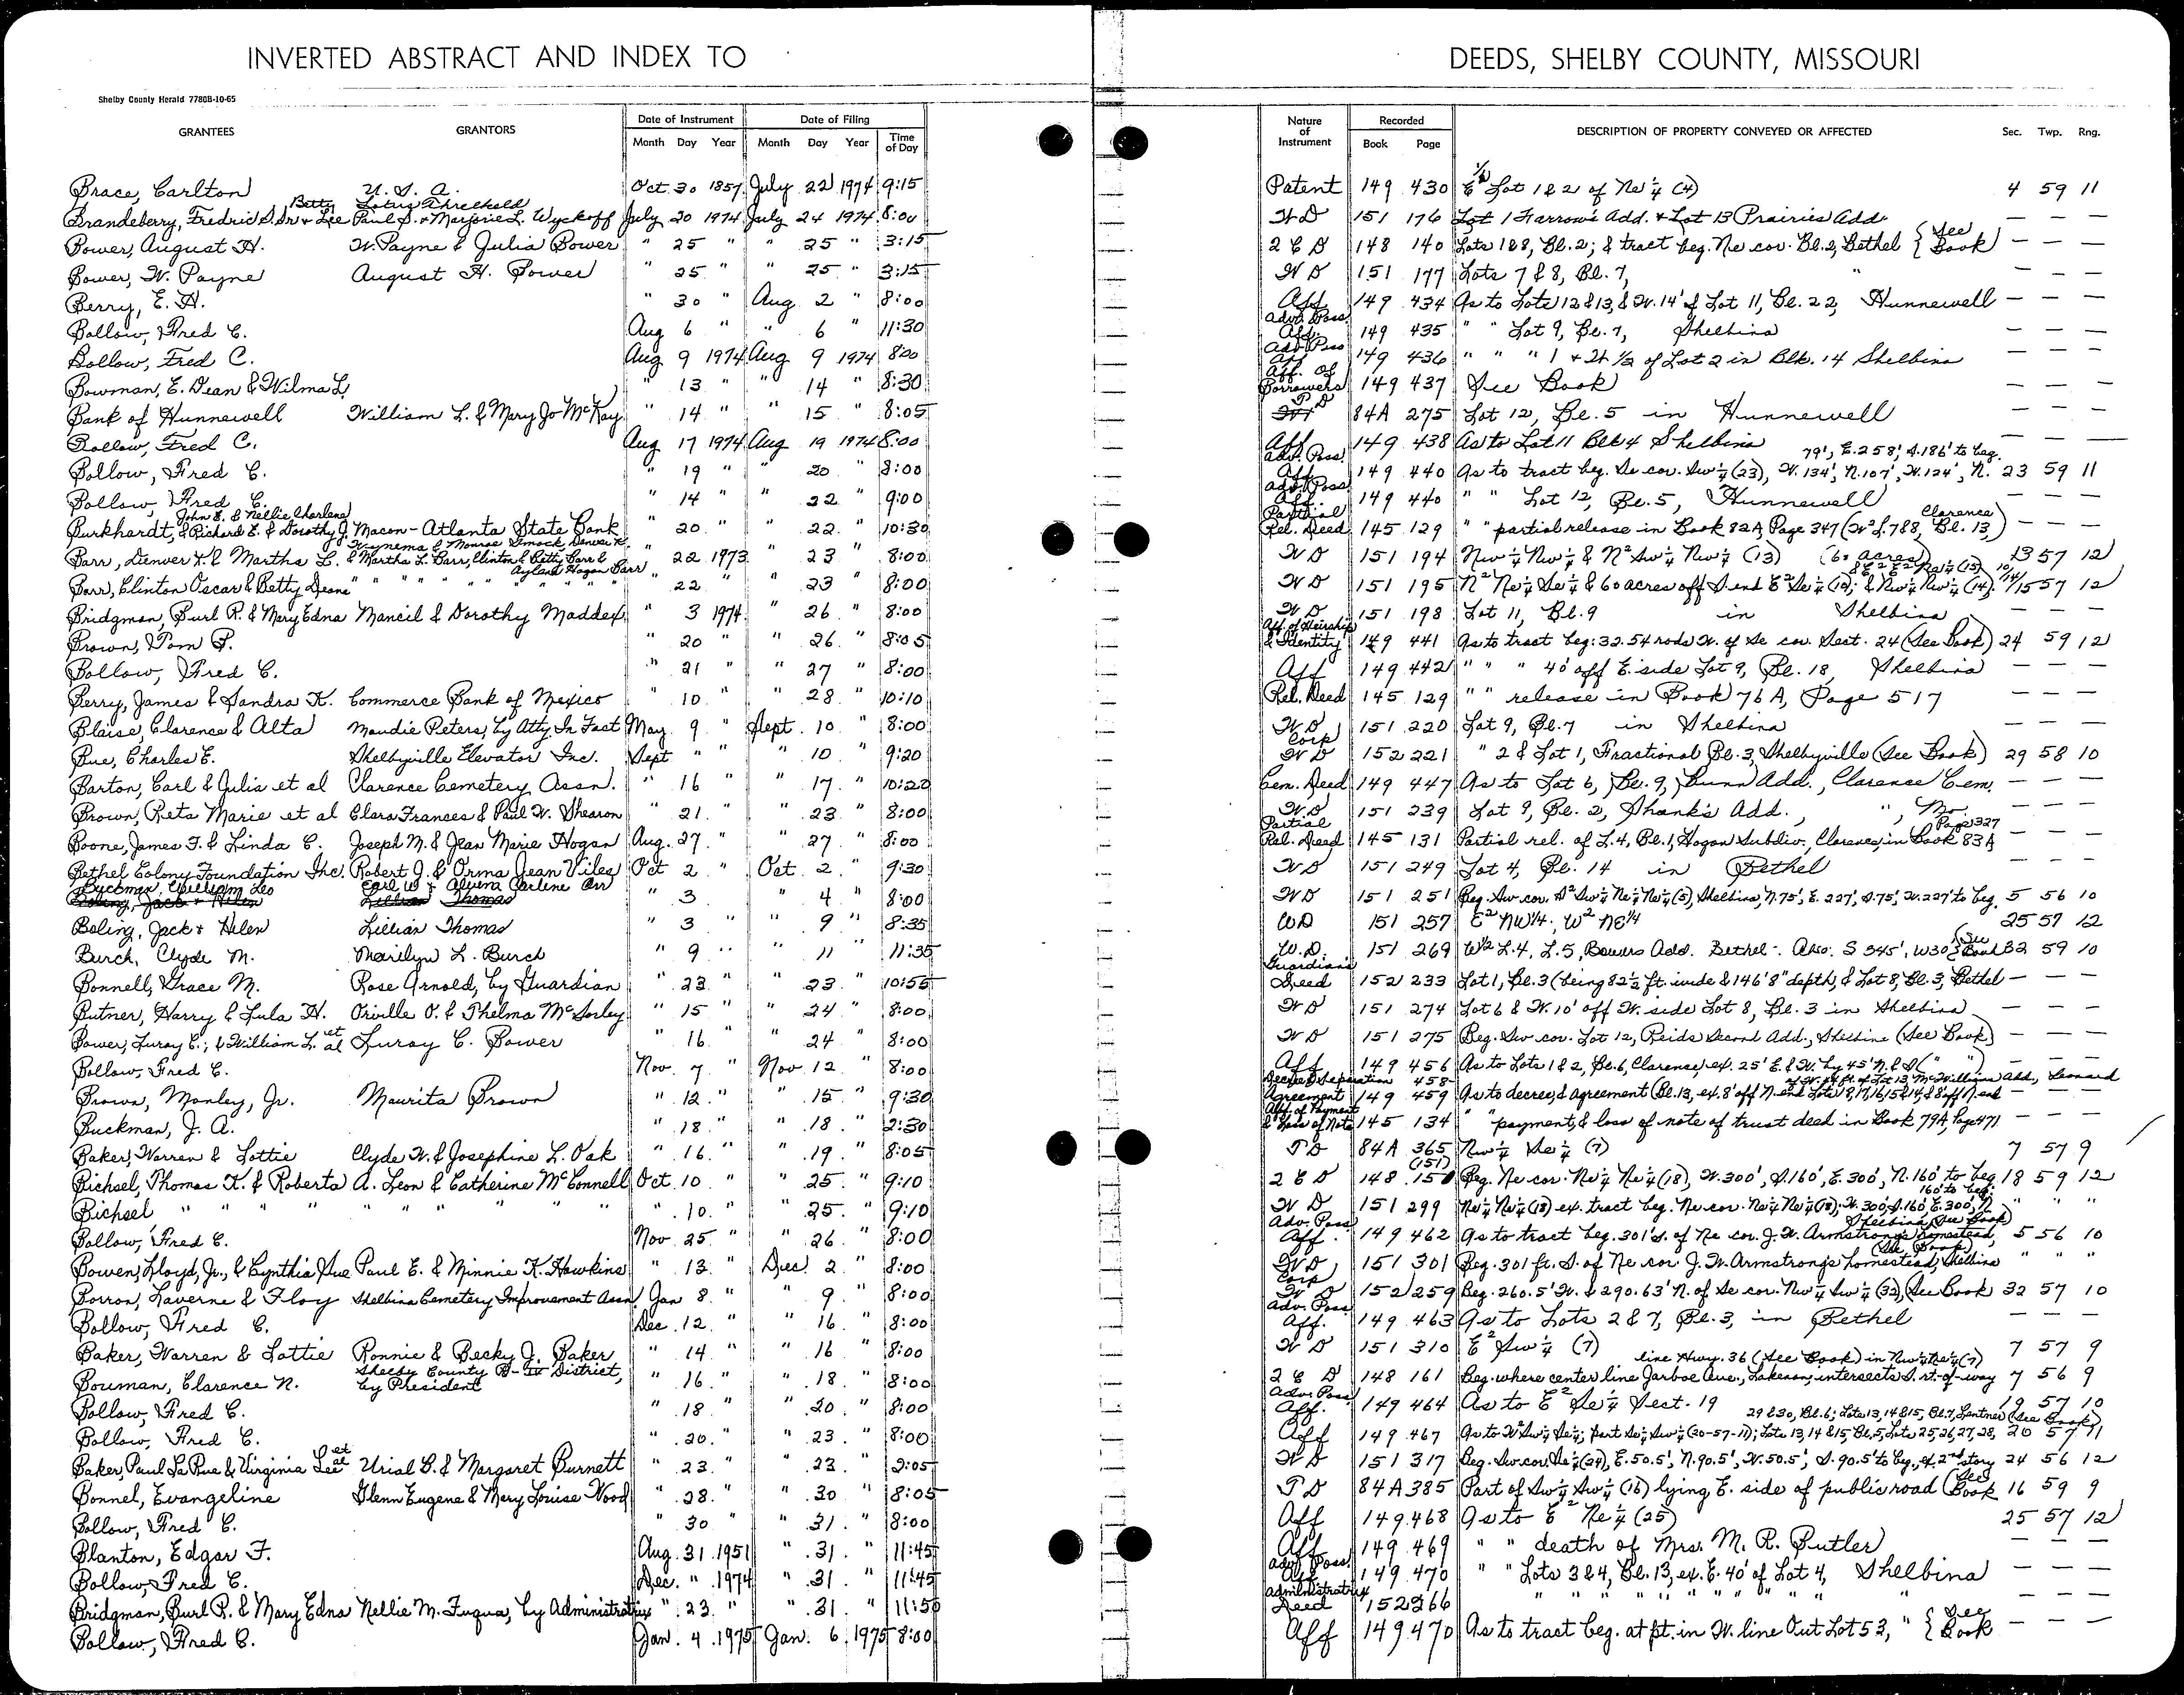 INVERTED ABSTRACT AND INDEX TO DEEDS, SHELBY COUNTY, MISSOURI
Shelby County Herald 7780B-10-65
GRANTEES GRANTORS Date of Instrument Month Day Year Date of Filing Month Day Year Time of Day Nature of Instrument Recorded Book Page DESCRIPTION OF PROPERTY CONVEYED OR AFFECTED Sec. Twp. Rng.
Brace, Carlton U. S. A. Oct. 30 1857 July 22 1974 9:15 Patent 149 430 E 1/2 Lot 1 & 2 of Ne 1/4 (4) 4 59 11
Betty Lotus Threlkeld
Brandeberry, Fredric S. Sr & Lee Paul S. & Marjorie L. Wyckoff July 20 1974 July 24 1974 8:00 W D 151 176 Lot 1 Farrow's Add. & Lot 13 Prairies Add. — — —
Bower, August H. W. Payne & Julia Bower " 25 " " 25 " 3:15 2 C D 148 140 Lots 1 & 8, Bl. 2; & tract beg. Ne cor. Bl. 2, Bethel { See Book — — —
Bower, W. Payne August H. Bower " 25 " " 25 " 3:15 W D 151 177 Lots 7 & 8, Bl. 7, " — — —
Berry, E. H. " 30 " Aug 2 " 8:00 Aff 149 434 As to Lots 12 & 13, & W. 14' of Lot 11, Bl. 22, Hunnewell — — —
Bollow, Fred C. Aug 6 " " 6 " 11:30 Adv. Poss. Aff. 149 435 " " Lot 9, Bl. 7, Shelbina — — —
Bollow, Fred C. Aug 9 1974 Aug 9 1974 8:00 Adv. Poss Aff 149 436 " " " 1 & W 1/2 of Lot 2 in Blk. 14 Shelbina — — —
Bowman, E. Dean & Wilma L. " 13 " " 14 " 8:30 Aff. of Borrowers 149 437 See Book — — —
Bank of Hunnewell William L. & Mary Jo McKay " 14 " " 15 " 8:05 T D 84A 275 Lot 12, Bl. 5 in Hunnewell — — —
Bollow, Fred C. Aug 17 1974 Aug 19 1974 8:00 Aff Adv. Poss. 149 438 As to Lot 11 Blk 4 Shelbina — — —
79', E. 258', S. 186' to beg.
Bollow, Fred C. " 19 " " 20 " 8:00 Aff Adv. Poss. 149 440 As to tract beg. Se cor. Sw 1/4 (23), W. 134', N. 107', W. 124', N. 23 59 11
Bollow, Fred C. " 14 " " 22 " 9:00 Aff. 149 440 " " Lot 12, Bl. 5, Hunnewell — — —
John E. & Nellie Charlene Clarence
Burkhardt, & Richard E. & Dorothy J. Macon-Atlanta State Bank " 20 " " 22 " 10:30 Partial Rel. Deed 145 129 " " partial release in Book 82A, Page 347 (W² L. 7&8, Bl. 13) — — —
Wynema & Monroe Simock, Denver K.
Barr, Denver K. & Martha L. & Martha L. Barr, Clinton & Betty Barr & Ayland Hogan Barr " 22 1973 " 23 " 8:00 W D 151 194 Nw 1/4 Nw 1/4 & N² Sw 1/4 Nw 1/4 (13) (60 acres) 13 57 12
Barr, Clinton Oscar & Betty Deane " " " " " 22 " 23 " 8:00 W D 151 195 N² Ne 1/4 Se 1/4 & 60 acres off S. end E² Se 1/4 (10); & Nw 1/4 Nw 1/4 (14). 57 12
Bridgman, Burl R. & Mary Edna Mancil & Dorothy Maddex " 3 1974 " 26 " 8:00 W D 151 198 Lot 11, Bl. 9 in Shelbina — — —
Brown, Tom F. " 20 " " 26 " 8:05 Aff. of Heirship & Identity 149 441 As to tract beg: 32.54 rods W. of Se cor. Sect. 24 (See Book) 24 59 12
Bollow, Fred C. " 21 " " 27 " 8:00 Aff 149 442 " " " 40' off E. side Lot 9, Bl. 18, Shelbina — — —
Berry, James & Sandra K. Commerce Bank of Mexico " 10 " " 28 " 10:10 Rel. Deed 145 129 " " release in Book 76A, Page 517 — — —
Blaise, Clarence & Alta Maudie Peters, by Atty. In Fact May 9 " Sept. 10 " 8:00 W. D 151 220 Lot 9, Bl. 7 in Shelbina — — —
Bue, Charles E. Shelbyville Elevator Inc. Sept " " " 10 " 9:20 Corp W D 152 221 " 2 & Lot 1, Fractional Bl. 3, Shelbyville (See Book) 29 58 10
Barton, Carl & Julia et al Clarence Cemetery Assn. " 16 " " 17 " 10:20 Cem. Deed 149 447 As to Lot 6, Bl. 9, Bunn Add., Clarence Cem. — — —
Brown, Reta Marie et al Clara Frances & Paul W. Shearon " 21 " " 23 " 8:00 W. D 151 239 Lot 9, Bl. 2, Shank's Add., ", Mo. — — —
Page 327
Boone, James T. & Linda C. Joseph M. & Jean Marie Hogan Aug. 27 " " 27 " 8:00 Partial Rel. Deed 145 131 Partial rel. of L. 4, Bl. 1, Hogan Subdiv., Clarence, in Book 83A — — —
Bethel Colony Foundation Inc. Robert J. & Orma Jean Viles Oct 2 " Oct. 2 " 9:30 W D 151 249 Lot 4, Bl. 14 in Bethel — — —
Buckman, William Leo Earl W & Alvena Carlene Orr
Boling, Jack & Helen Lillian Thomas " 3 " 4 " 8:00 W D 151 251 Beg. Sw cor. S² Sw 1/4 Ne 1/4 Ne 1/4 (5), Shelbina, N. 75', E. 227', S. 75', W. 227' to beg. 5 56 10
Boling, Jack & Helen Lillian Thomas " 3 " " 9 " 8:35 WD 151 257 E² NW 1/4 . W² NE 1/4 25 57 12
Burch, Clyde M. Marilyn L. Burch " 9 " " 11 " 11:35 W. D. 151 269 W½ L. 4, L. 5, Bowers Add. Bethel. Also: S 345', W30 { See Book 32 59 10
Bonnell, Grace M. Rose Arnold, by Guardian " 23 " " 23 " 10:55 Guardian's Deed 152 233 Lot 1, Bl. 3 (being 82½ ft. wide & 146'8" depth, & Lot 8, Bl. 3, Bethel — — —
Butner, Harry & Lula H. Orville O. & Thelma McSorley " 15 " " 24 " 8:00 W D 151 274 Lot 6 & W. 10' off W. side Lot 8, Bl. 3 in Shelbina — — —
Bower, Luray C.; & William L. et al Luray C. Bower " 16 " 24 " 8:00 W D 151 275 Beg. Sw cor. Lot 12, Reids Second Add., Shelbina (See Book) — — —
Bollow, Fred C. Nov. 7 " Nov. 12 " 8:00 Aff 149 456 As to Lots 1 & 2, Bl. 6, Clarence, ex. 25' E. & W. by 45' N. & S (" ") — — —
Brown, Manley, Jr. Maurita Brown " 12 " " 15 " 9:30 Decree & Separation Agreement 149 458- 459 As to decree, & agreement (Bl. 13, ex. 8' off N. end Lots 8, 17, 16, 15 & 14, & 8' off N. end of W. ft. of Lot 13, McWilliams Add., Leonard
Buckman, J. A. " 18 " " 18 " 2:30 Aff. of Payment & Loss of Note 145 134 " " payment, & loss of note of trust deed in Book 79A, Page 471 — — —
Baker, Warren & Lottie Clyde W. & Josephine L. Oak " 16 " " 19 " 8:05 T D 84A 365 Nw 1/4 Se 1/4 (7) 7 57 9
Bichsel, Thomas K. & Roberta A. Leon & Catherine McConnell Oct. 10 " " 25 " 9:10 2 C D 148 (151) 150 Beg. Ne cor. Ne 1/4 Ne 1/4 (18), W. 300', S. 160', E. 300', N. 160' to beg. 18 59 12
Bichsel " " " " " " " " 10 " " 25 " 9:10 W D 151 299 Ne 1/4 Ne 1/4 (18) ex. tract beg. Ne cor. Ne 1/4 Ne 1/4 (18), W. 300', S. 160', E. 300', N. 160' to beg. " " "
Bollow, Fred C. Nov. 25 " " 26 " 8:00 Adv. Poss. Aff. 149 462 As to tract beg. 301' S. of Ne cor. J. W. Armstrong's homestead, Shelbina (See Book) 5 56 10
Bowen, Lloyd, Jr., & Cynthia Sue Paul E. & Minnie K. Hawkins " 13 " Dec. 2 " 8:00 W D 151 301 Beg. 301 ft. S. of Ne cor J. W. Armstrong's homestead, Shelbina (See Book) " " "
Borron, Laverne & Floy Shelbina Cemetery Improvement Assn. Jan 8 " " 9 " 8:00 Corp W D 152 259 Beg. 260.5' W. & 290.63' N. of Se cor. Nw 1/4 Sw 1/4 (32), (See Book 32 57 10
Bollow, Fred C. Dec. 12 " " 16 " 8:00 Adv. Poss. Aff. 149 463 As to Lots 2 & 7, Bl. 3, in Bethel — — —
Baker, Warren & Lottie Ronnie & Becky J. Baker " 14 " " 16 " 8:00 W D 151 310 E² Sw 1/4 (7) 7 57 9
Bouman, Clarence N. Shelby County R-IV District, by President " 16 " " 18 " 8:00 2 C D 148 161 Beg. where center line Jarboe Ave., Lakenan, intersects S. rt-of-way line Hwy. 36 (See Book) in Nw 1/4 Ne 1/4 (7) 7 56 9
Bollow, Fred C. " 18 " " 20 " 8:00 Adv. Poss. Aff. 149 464 As to E² Se 1/4 Sect. 19 19 57 10
29 & 30, Bl. 6; Lots 13, 14 & 15, Bl. 7, Lentner (See Book)
Bollow, Fred C. " 20 " " 23 " 8:00 Aff 149 467 As to W² Sw 1/4 Se 1/4; part Se 1/4 Sw 1/4 (20-57-11); Lots 13, 14 & 15, Bl. 5, Lots 25, 26, 27, 28, 20 57 11
Baker, Paul LaRue & Virginia Lee et al Urial B. & Margaret Burnett " 23 " " 23 " 2:05 W D 151 317 Beg. Sw cor. Se 1/4 (24), E. 50.5', N. 90.5', W. 50.5', S. 90.5' to beg., ex. 2nd story 24 56 12
Bonnel, Evangeline Glenn Eugene & Mary Louise Wood " 28 " " 30 " 8:05 T D 84A 385 Part of Sw 1/4 Sw 1/4 (16) lying E. side of public road (See Book 16 59 9
Bollow, Fred C. " 30 " " 31 " 8:00 Aff 149 468 As to E² Ne 1/4 (25) 25 57 12
Blanton, Edgar F. Aug. 31 1951 " 31 " 11:45 Aff 149 469 " " death of Mrs. M. R. Butler — — —
Bollow, Fred C. Dec. " 1974 " 31 " 11:45 Adv. Poss. Aff 149 470 " " Lots 3 & 4, Bl. 13, ex. E. 40' of Lot 4, Shelbina — — —
Bridgman, Burl R. & Mary Edna Nellie M. Fuqua, by Administratrix " 23 " " 31 " 11:50 Administratrix Deed 152 266 " " " " " " " " " — — —
Bollow, Fred C. Jan. 4 1975 Jan. 6 1975 8:00 Aff 149 470 As to tract beg. at pt. in W. line Out Lot 53, " { See Book — — —